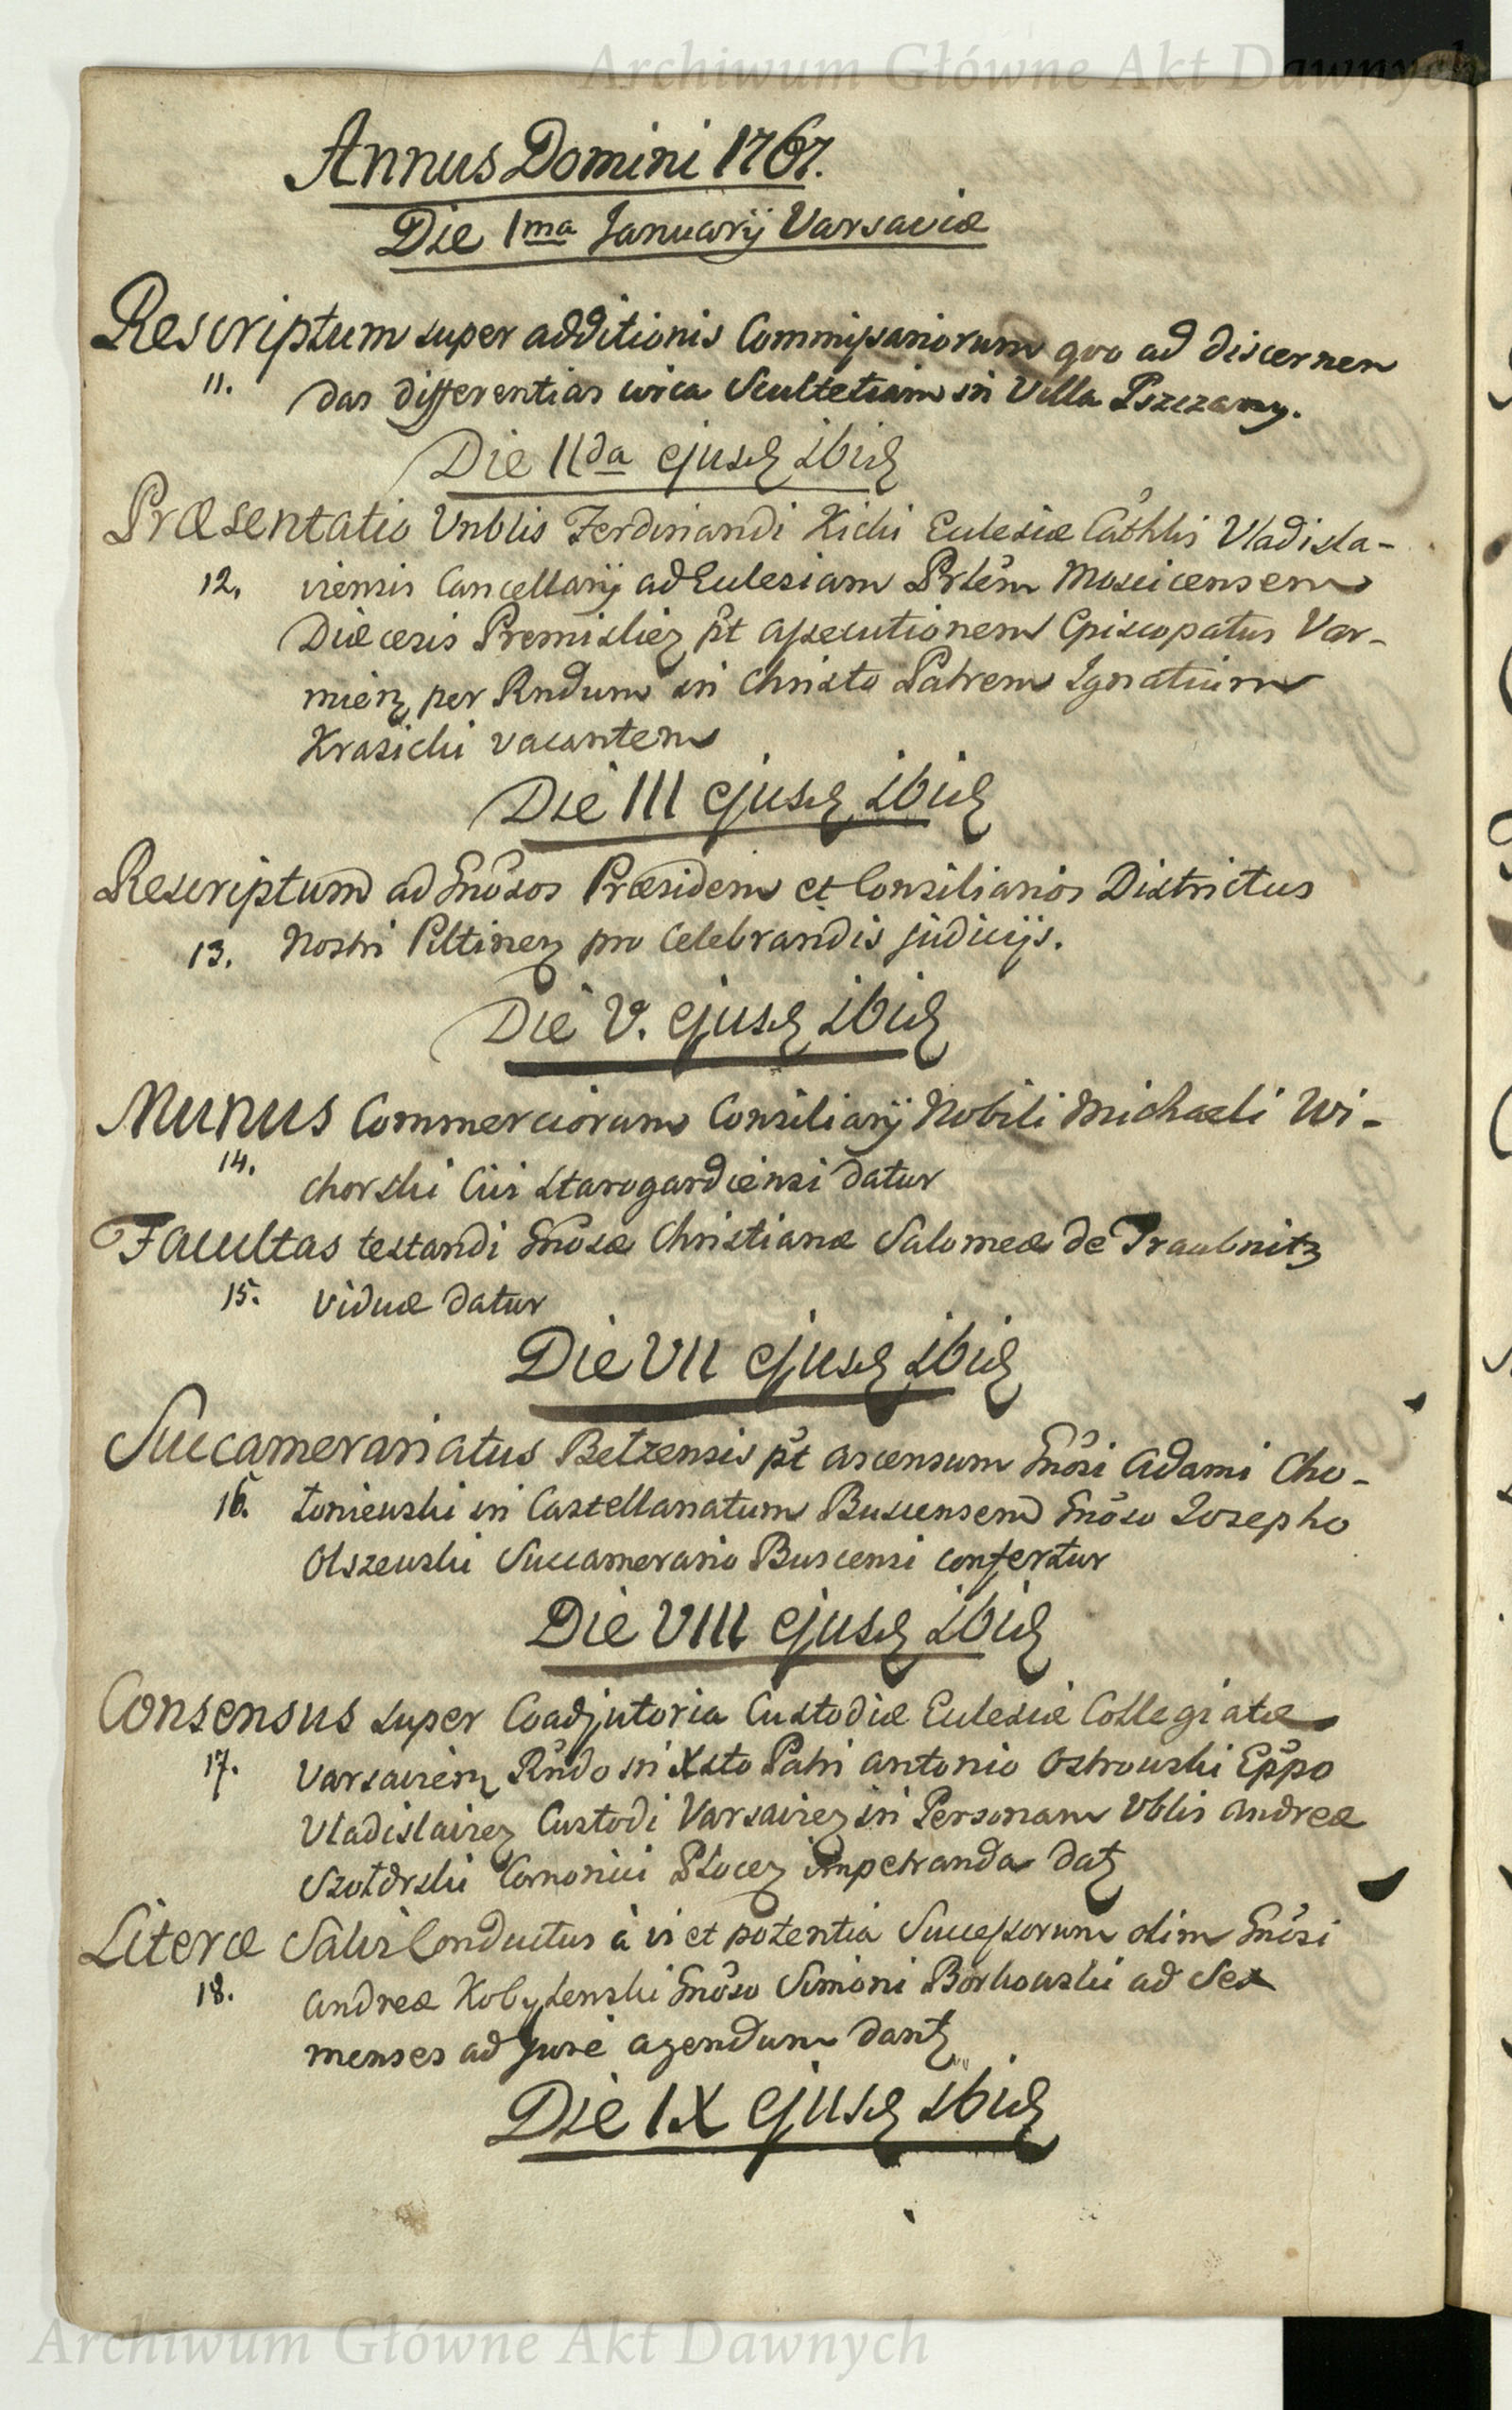 Archiwum Główne Akt Dawnych
Annus Domini 1767.
Die 1ma Januarij Varsaviæ
Rescriptum super additionis Commissariorum quo ad discernen
11. das differentias circa Scultetiam in Villa Pszczany.
Die IIda ejusd ibid
Præsentatio Vnblis Ferdinandi Kicki Eclesiæ Cathlis Vladisla-
12. viensis Cancellarij ad Eclesiam Prlem Moscicensem
Diæcesis Premisliez pt assecutionem Episcopatus Var-
mien per Rndum in Christo Patrem Ignatium
Krasicki vacantem
Die III ejusd ibid
Rescriptum ad Gnosos Præsidem et Consiliarios Districtus
13. Nostri Piltinen pro celebrandis judicijs.
Die V. ejusd ibid
Munus Commerciorum Consiliarij Nobili Michaeli Wi-
14. chorski Civi Starogardiensi datur
Facultas testandi Gnosæ Christianæ Salomeæ de Traubnitz
15. viduæ datur
Die VII ejusd ibid
Succamerariatus Betzensis pt ascensum Gnosi Adami Cho-
16. łoniewski in Castellanatum Buscensem Gnoso Iosepho
Olszewski Succamerario Buscensi confertur
Die VIII ejusd ibid
Consensus super Coadjutoria Custodiæ Eclesiæ Collegiatæ
17. Varsavien Rndo in Xsto Patri Antonio Ostrowski Eppo
Vladislavien Custodi Varsavien in Personam Vblis Andreæ
Szołdrski Canonici Płocen impetranda dat
Literæ Salvi Conductus à vi et potentia Successorum olim Gnosi
18. Andreæ Kobyłenski Gnoso Simoni Borkowski ad Sex
menses ad jure agendum dant
Die IX ejusd ibid
Archiwum Główne Akt Dawnych